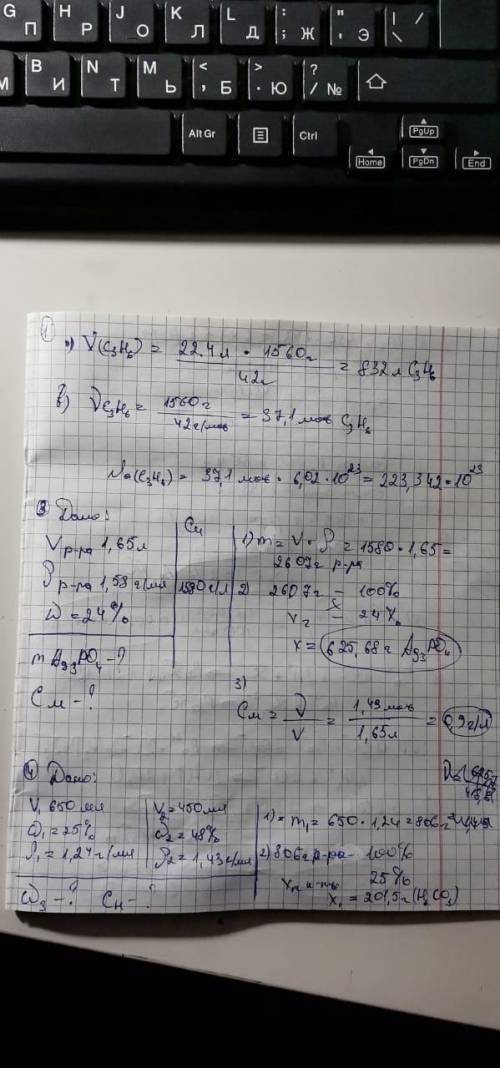 G П
H Р
J О
K Л
L Д
: ; Ж
" ' Э
| / \
М
B И
N Т
M Ь
< , Б
> . Ю
? / №
Alt Gr
Ctrl
PgUp
Home
PgDn
End
1
а) V(C₃H₆) = 22.4л · 1560г / 42г = 832л C₃H₆
в) νC₃H₆ = 1560г / 42г/моль = 37,1 моль C₃H₆
Na(C₃H₆) = 37,1 моль · 6,02·10²³ = 223,342·10²³
3 Дано:
Vр-ра 1,65л
ρр-ра 1,58 г/мл
ω = 24%
m Ag₃PO₄ - ?
См - ?
Си
1580 г/л
1) m = V · ρ = 1580 · 1,65 =
2607г р-ра
2) 2607г – 100%
xг – 24%
x = 625,68г Ag₃PO₄
3)
См = ν / V = 1,49 моль / 1,65л = 0,9г/л
4 Дано:
V₁ 650 мл
ω₁ = 25%
ρ₁ = 1,24 г/мл
V₂ = 450 мл
ω₂ = 48%
ρ₂ = 1,43 г/мл
ω₃ - ? Сн - ?
1) = m₁ = 650 · 1,24 = 806г
2) 806г р-ра – 100%
25%
x₁ = 201,5г (H₂CO₃)